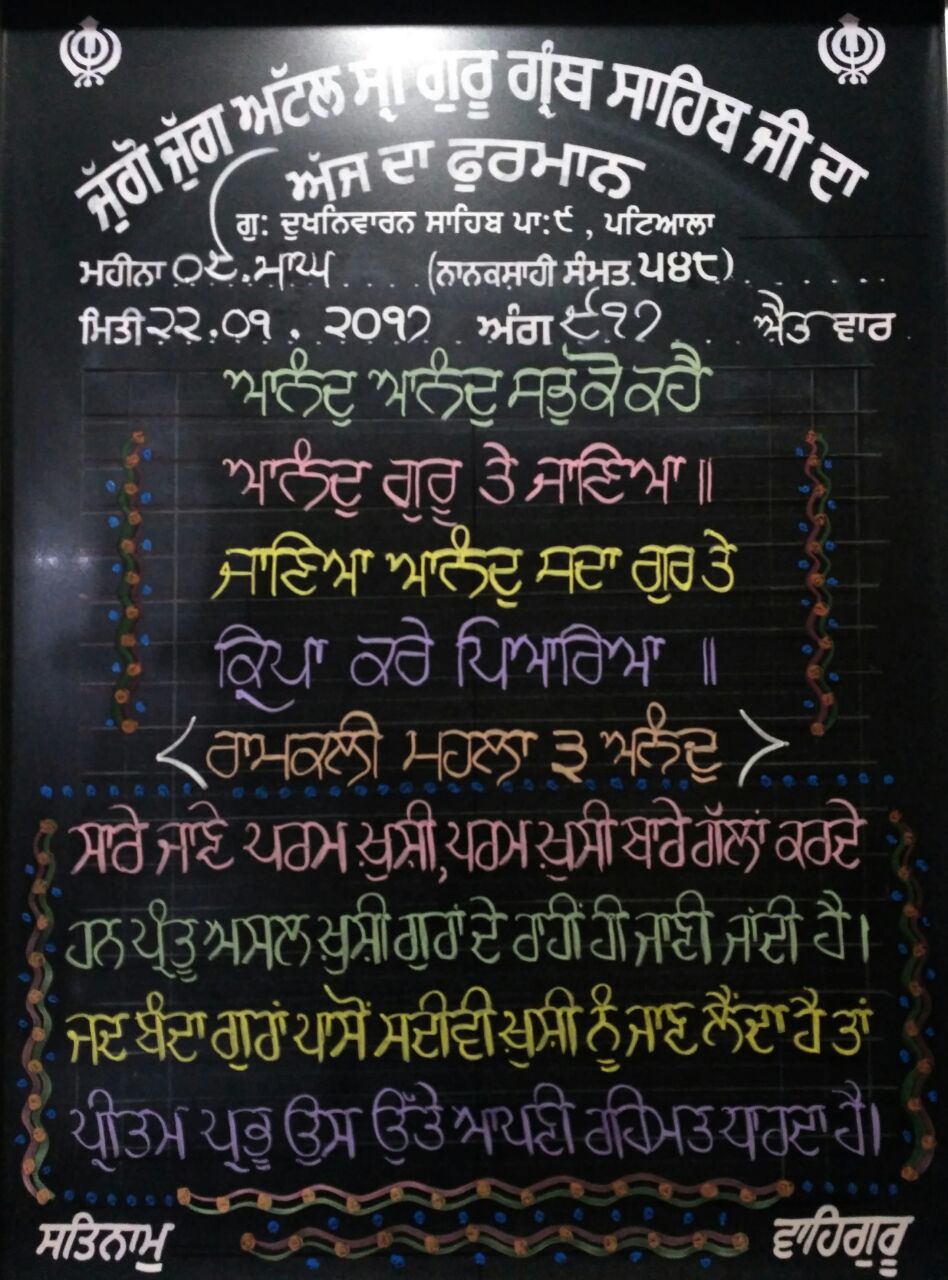 ਜੁੱਗੋ ਜੁੱਗ ਅਟੱਲ ਸ੍ਰੀ ਗੁਰੂ ਗ੍ਰੰਥ ਸਾਹਿਬ ਜੀ ਦਾ
ਅੱਜ ਦਾ ਫੁਰਮਾਨ
ਗੁ: ਦੁਖਨਿਵਾਰਨ ਸਾਹਿਬ ਪਾ:੯ , ਪਟਿਆਲਾ
ਮਹੀਨਾ ੦੯.ਮਾਘ (ਨਾਨਕਸਾਹੀ ਸੰਮਤ ੫੪੮)
ਮਿਤੀ ੨੨.੦੧.੨੦੧੭ ਅੰਗ ੯੧੭ ਐਤ ਵਾਰ
ਆਨੰਦੁ ਆਨੰਦੁ ਸਭੁ ਕੋ ਕਹੈ
ਆਨੰਦੁ ਗੁਰੂ ਤੇ ਜਾਣਿਆ ॥
ਜਾਣਿਆ ਆਨੰਦੁ ਸਦਾ ਗੁਰ ਤੇ
ਕ੍ਰਿਪਾ ਕਰੇ ਪਿਆਰਿਆ ॥
<ਰਾਮਕਲੀ ਮਹਲਾ ੩ ਅਨੰਦੁ>
ਸਾਰੇ ਜਾਣੇ ਪਰਮ ਖ਼ੁਸ਼ੀ, ਪਰਮ ਖ਼ੁਸੀ ਬਾਰੇ ਗੱਲਾਂ ਕਰਦੇ
ਹਨ ਪ੍ਰੰਤੂ ਅਸਲ ਖ਼ੁਸ਼ੀ ਗੁਰਾਂ ਦੇ ਰਾਹੀਂ ਹੀ ਜਾਣੀ ਜਾਂਦੀ ਹੈ।
ਜਦ ਬੰਦਾ ਗੁਰਾਂ ਪਾਸੋਂ ਸਦੀਵੀ ਖ਼ੁਸ਼ੀ ਨੂੰ ਜਾਣ ਲੈਂਦਾ ਹੈ ਤਾਂ
ਪ੍ਰੀਤਮ ਪ੍ਰਭੂ ਉਸ ਉੱਤੇ ਆਪਣੀ ਰਹਿਮਤ ਧਾਰਦਾ ਹੈ।
ਸਤਿਨਾਮੁ ਵਾਹਿਗੁਰੂ